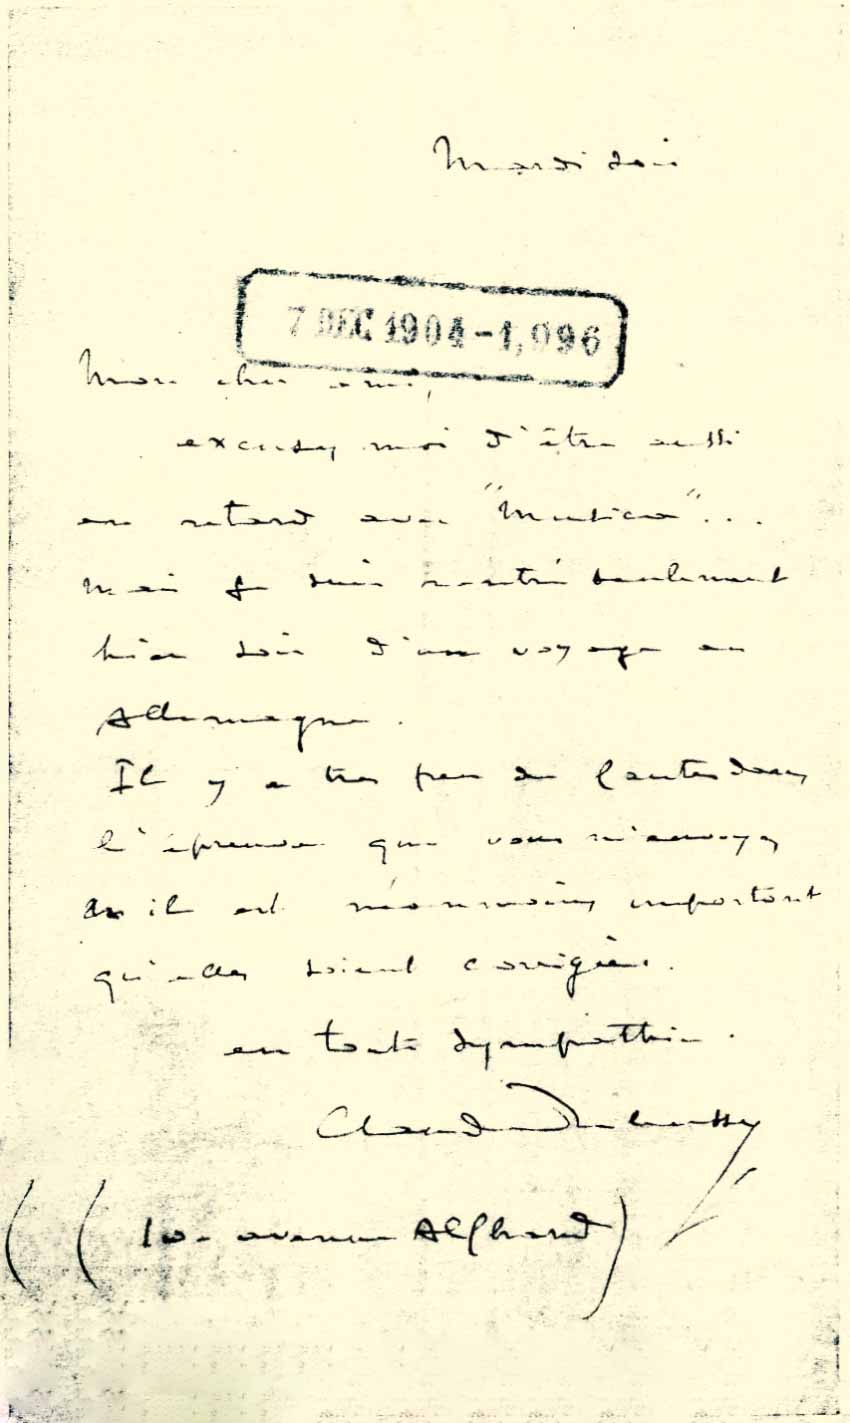 Mardi soir
7 DEC 1904 - 1,096
Mon cher ami,
excusez moi d'être aussi
en retard avec "Musica"...
mais je suis rentré seulement
hier soir d'un voyage en
Allemagne.
Il y a très peu de fautes dans
l'épreuve que vous m'envoyez
il est néanmoins important
qu'elles soient corrigées.
en toute sympathie.
Claude Debussy
((10. avenue Alphand)